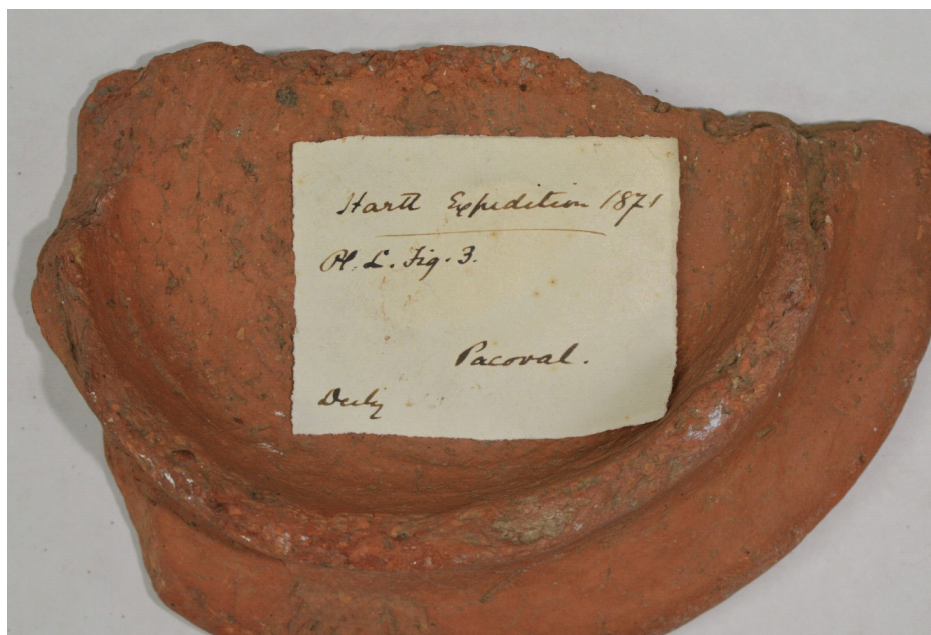 Hartt Expedition 1871
Pl. L. Fig. 3.
Pacoval.
Derby